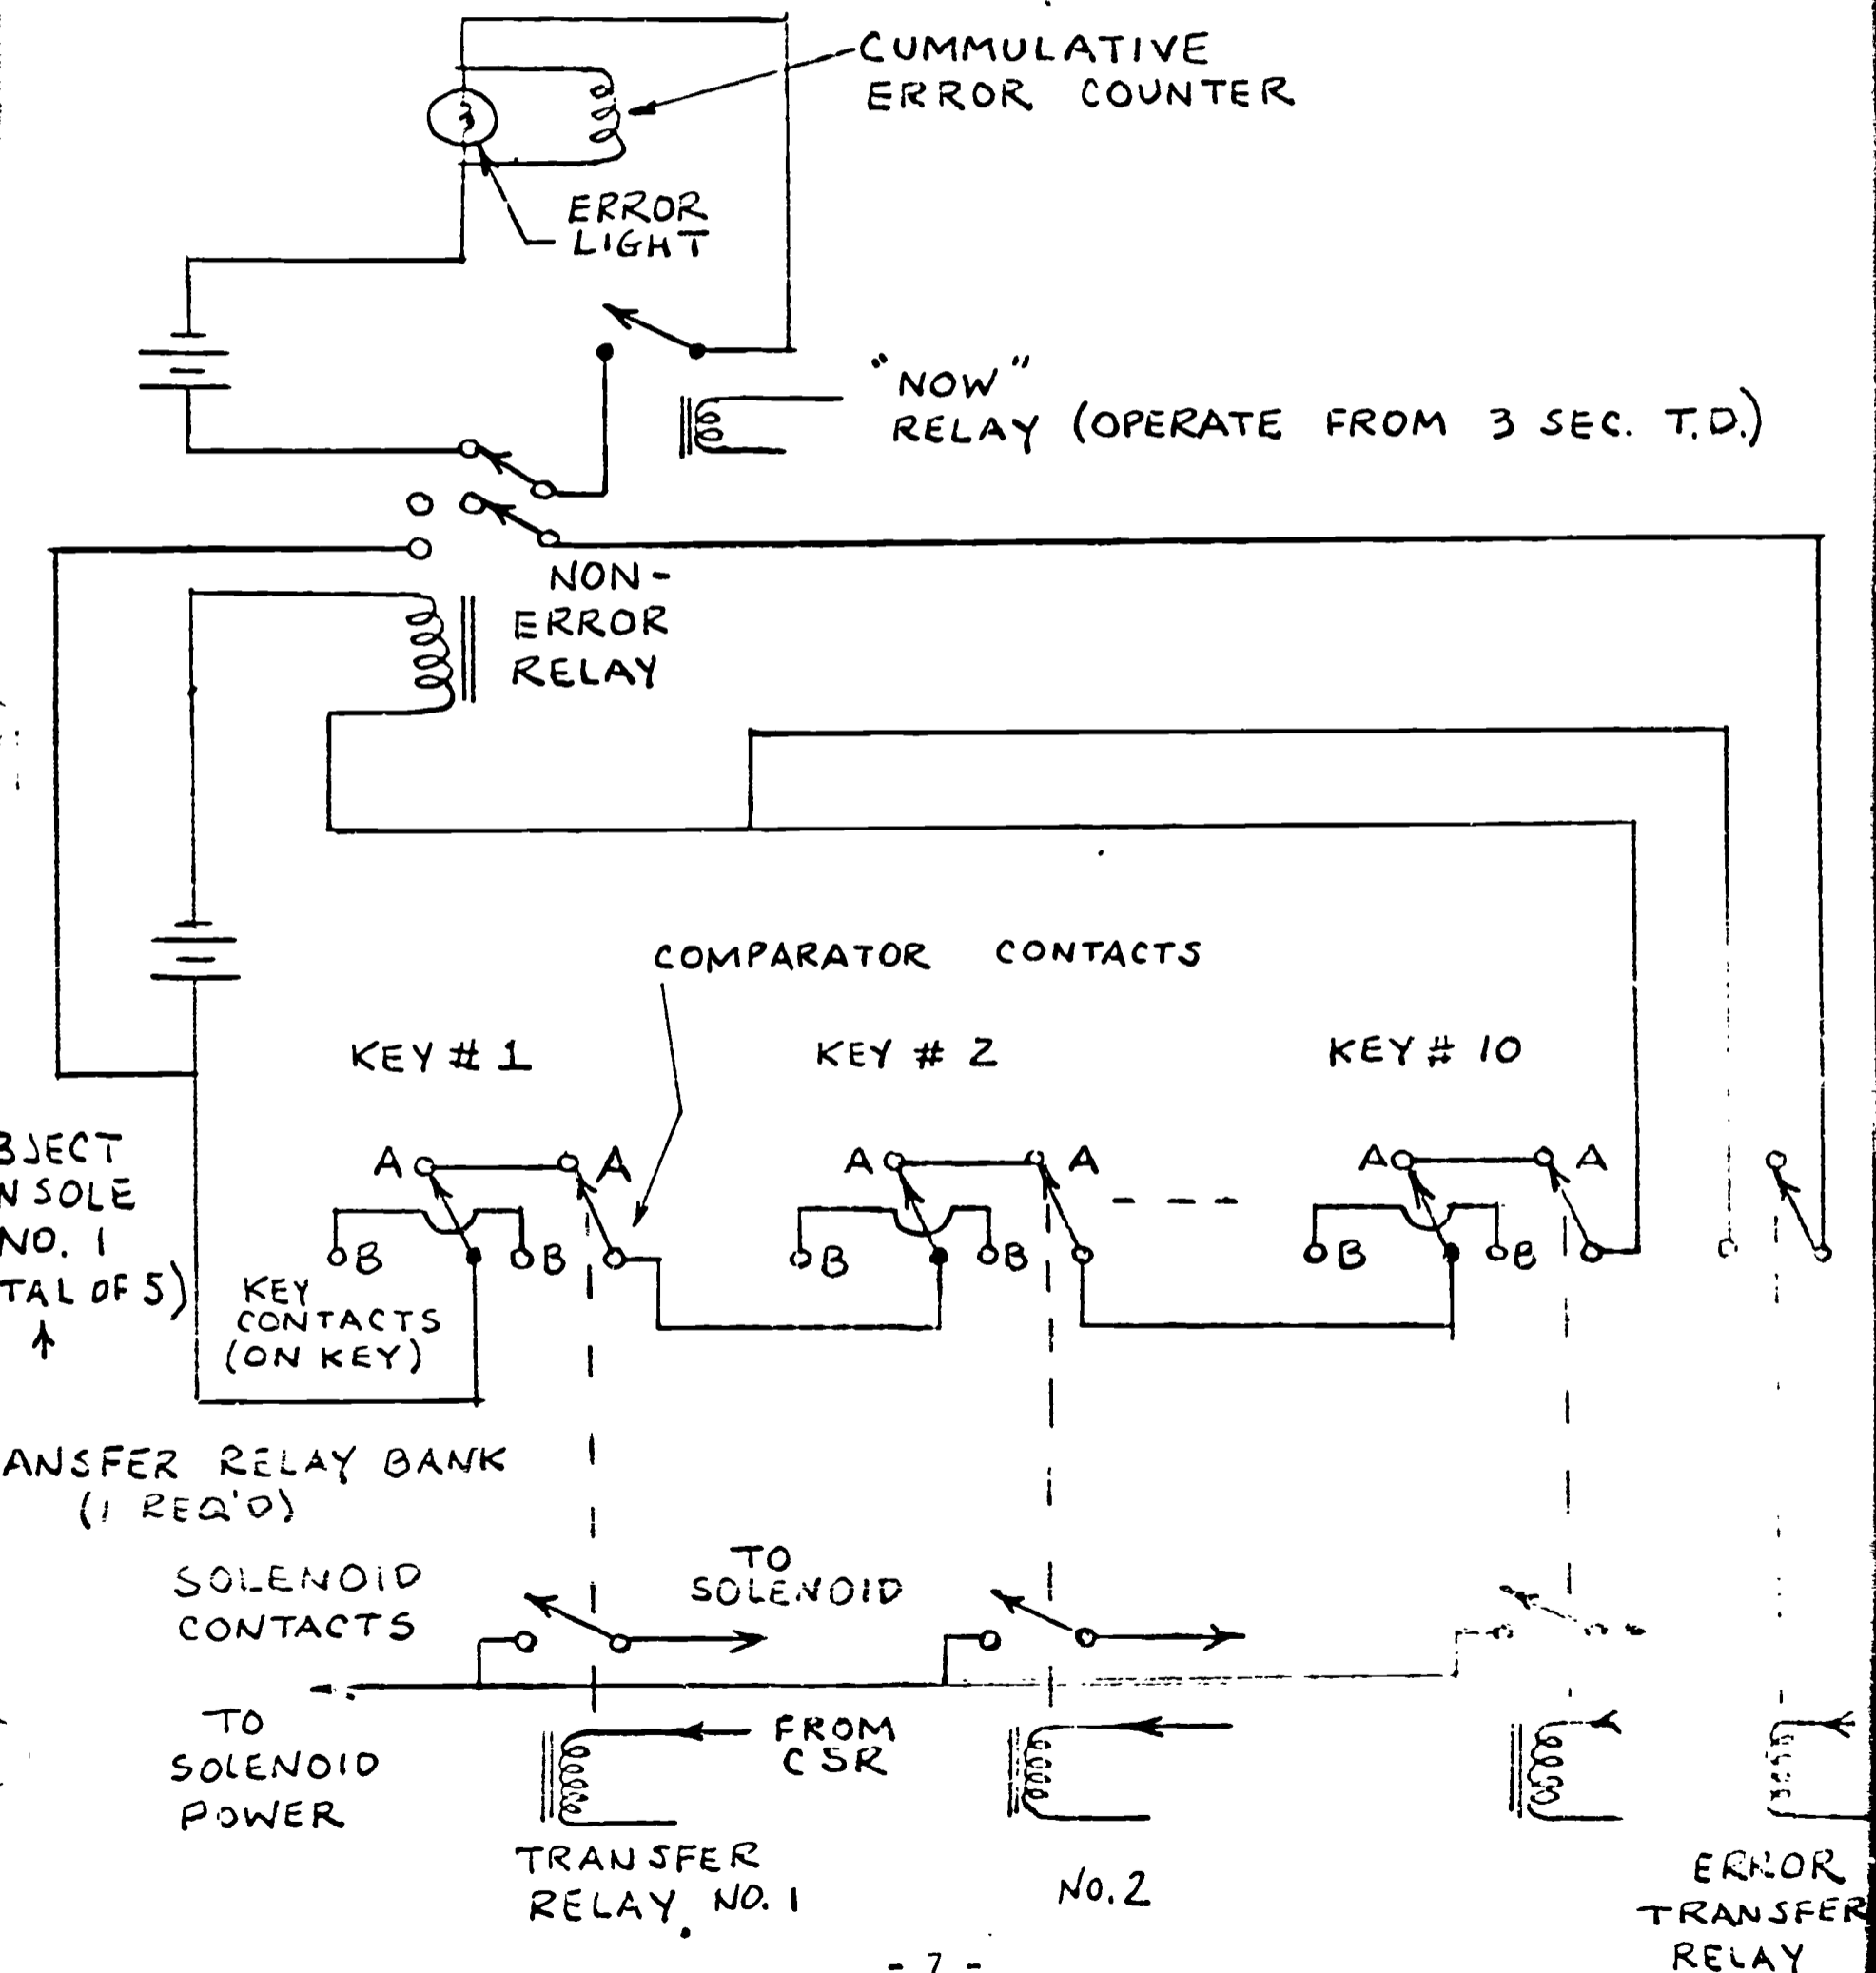 CUMMULATIVE
ERROR COUNTER
3
ERROR
LIGHT
"NOW"
RELAY (OPERATE FROM 3 SEC. T.D.)
NON-
ERROR
RELAY
COMPARATOR CONTACTS
KEY # 1
KEY # 2
KEY # 10
BJECT
NSOLE
NO. 1
TAL OF 5)
A A
A A
A A
B B
B B
B B
KEY
CONTACTS
(ON KEY)
ANSFER RELAY BANK
(1 REQ'D)
SOLENOID
CONTACTS
TO
SOLENOID
TO
SOLENOID
POWER
FROM
CSR
TRANSFER
RELAY NO. 1
NO. 2
ERROR
TRANSFER
RELAY
- 7 -